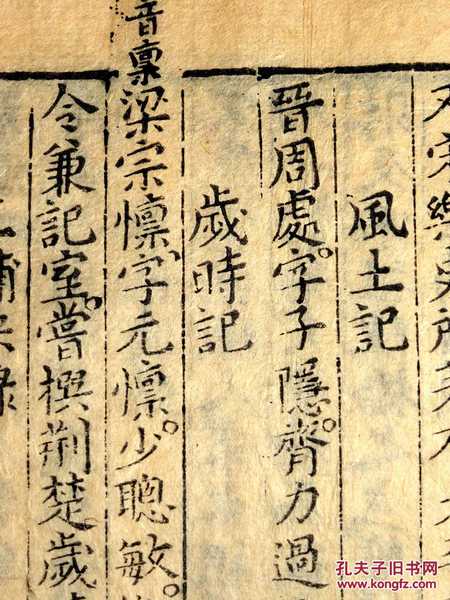 風土記
晉周處。字子隱。膂力過
歲時記
音禀
梁宗懔、字元懔。少聰敏。
令兼記室。嘗撰荆楚。歲
孔夫子旧书网
www.kongfz.com